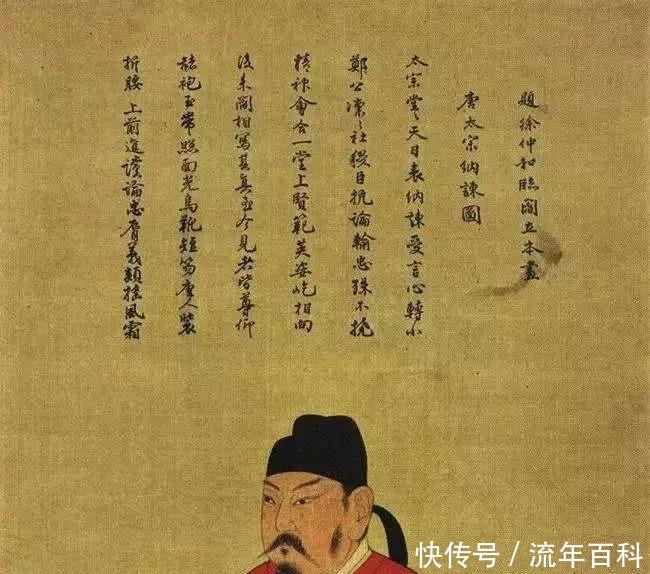 題徐仲和臨閻立本畫
唐太宗納諫圖
太宗堂〻天日表納諫受言心轉小
鄭公凜〻社稷臣抗論輸忠殊不撓
精神會合一堂上賢範英姿屹相向
後來閻相寫其真至今見者皆尊仰
赭袍玉帶照面光烏靴短笏唐人裝
折腰上前進讜論忠脣義頰搖風霜
快传号 / 流年百科